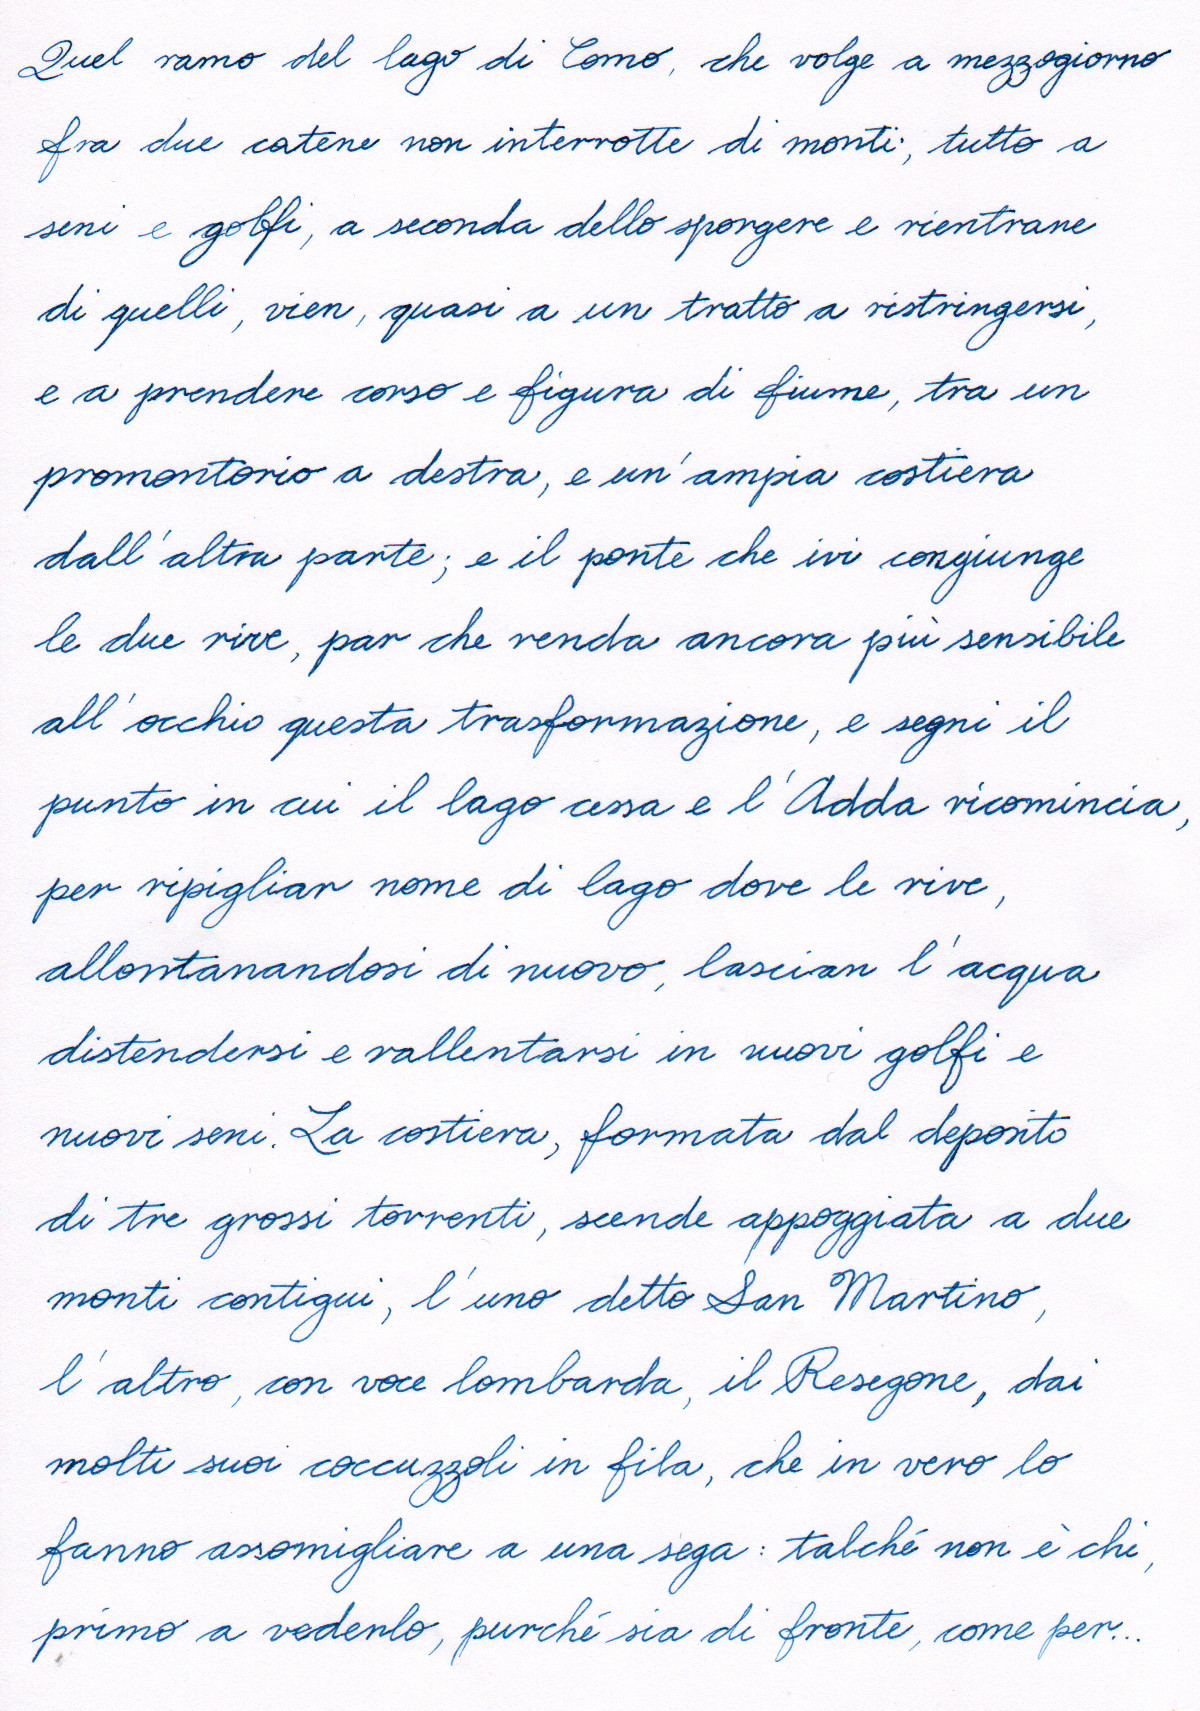 Quel ramo del lago di Como, che volge a mezzogiorno
fra due catene non interrotte di monti, tutto a
seni e golfi, a seconda dello sporgere e rientrare
di quelli, vien, quasi a un tratto a ristringersi,
e a prendere corso e figura di fiume, tra un
promontorio a destra, e un'ampia costiera
dall'altra parte; e il ponte che ivi congiunge
le due rive, par che renda ancora più sensibile
all'occhio questa trasformazione, e segni il
punto in cui il lago cessa e l'Adda ricomincia,
per ripigliar nome di lago dove le rive,
allontanandosi di nuovo, lascian l'acqua
distendersi e rallentarsi in nuovi golfi e
nuovi seni. La costiera, formata dal deposito
di tre grossi torrenti, scende appoggiata a due
monti contigui, l'uno detto San Martino,
l'altro, con voce lombarda, il Resegone, dai
molti suoi coccuzzoli in fila, che in vero lo
fanno assomigliare a una sega: talché non è chi,
primo a vederlo, purché sia di fronte, come per...